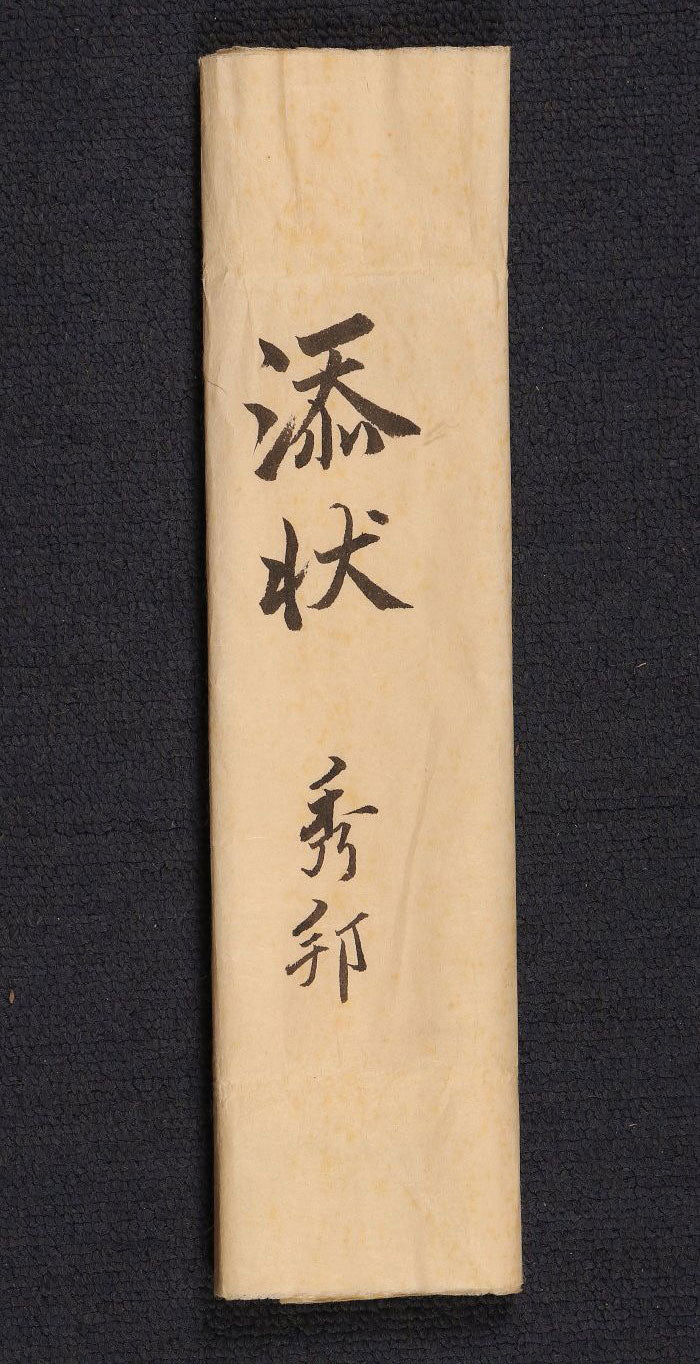 添状
秀邦